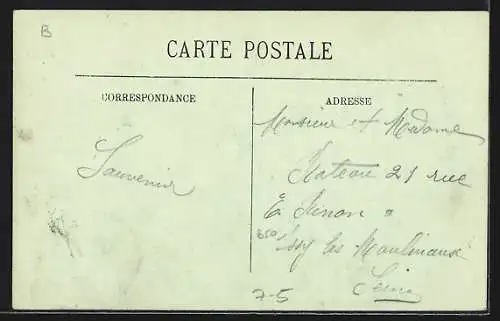 B
CARTE POSTALE
CORRESPONDANCE
ADRESSE
Souvenir
Monsieur et Madame
Rateau 21 rue
E Renan
Issy les Moulineaux
Seine
7-5